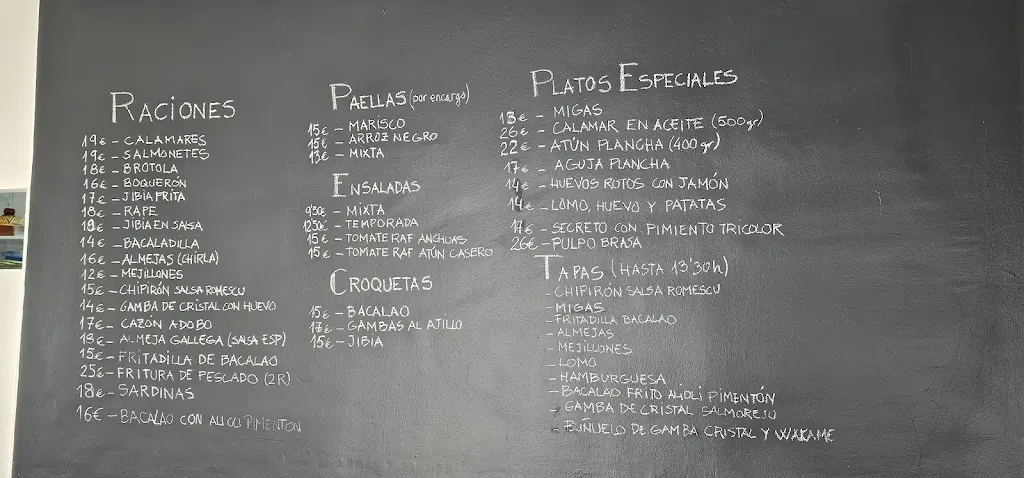 RACIONES
19€ - CALAMARES
19€ - SALMONETES
18€ - BROTOLA
16€ - BOQUERÓN
17€ - JIBIA FRITA
18€ - RAPE
18€ - JIBIA EN SALSA
14€ - BACALADILLA
16€ - ALMEJAS (CHIRLA)
12€ - MEJILLONES
15€ - CHIPIRÓN SALSA ROMESCU
14€ - GAMBA DE CRISTAL CON HUEVO
17€ - CAZÓN ADOBO
18€ - ALMEJA GALLEGA (SALSA ESP)
15€ - FRITADILLA DE BACALAO
25€ - FRITURA DE PESCADO (2R)
18€ - SARDINAS
16€ - BACALAO CON ALIOLI PIMENTON
PAELLAS (por encargo)
15€ - MARISCO
15€ - ARROZ NEGRO
13€ - MIXTA
ENSALADAS
9'50€ - MIXTA
12'50€ - TEMPORADA
15€ - TOMATE RAF ANCHOAS
15€ - TOMATE RAF ATÚN CASERO
CROQUETAS
15€ - BACALAO
17€ - GAMBAS AL AJILLO
15€ - JIBIA
PLATOS ESPECIALES
13€ - MIGAS
26€ - CALAMAR EN ACEITE (500gr)
22€ - ATÚN PLANCHA (400gr)
17€ - AGUJA PLANCHA
14€ - HUEVOS ROTOS CON JAMÓN
14€ - LOMO, HUEVO Y PATATAS
17€ - SECRETO CON PIMIENTO TRICOLOR
26€ - PULPO BRASA
TAPAS (HASTA 13'30h)
- CHIPIRÓN SALSA ROMESCU
- MIGAS
- FRITADILLA BACALAO
- ALMEJAS
- MEJILLONES
- LOMO
- HAMBURGUESA
- BACALAO FRITO ALIOLI PIMENTÓN
- GAMBA DE CRISTAL SALMOREJO
- BUÑUELO DE GAMBA CRISTAL Y WAKAME